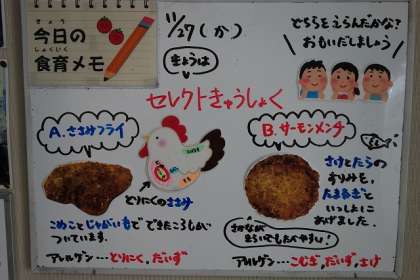 きょう
今日の
しょくいく
食育メモ
11/27(か)
きょうは
どちらをえらんだかな?
おもいだしましょう
セレクトきゅうしょく
A.ささみフライ
とりにくのささみ
こめことじゃがいもでできたころもが
ついています。
アレルゲン…とりにく、だいず
B.サーモンメンチ
さけとたらの
すりみを、
たまねぎと
いっしょに
あげました。
さかなが
アレルゲン…こむぎ、だいず、さけ